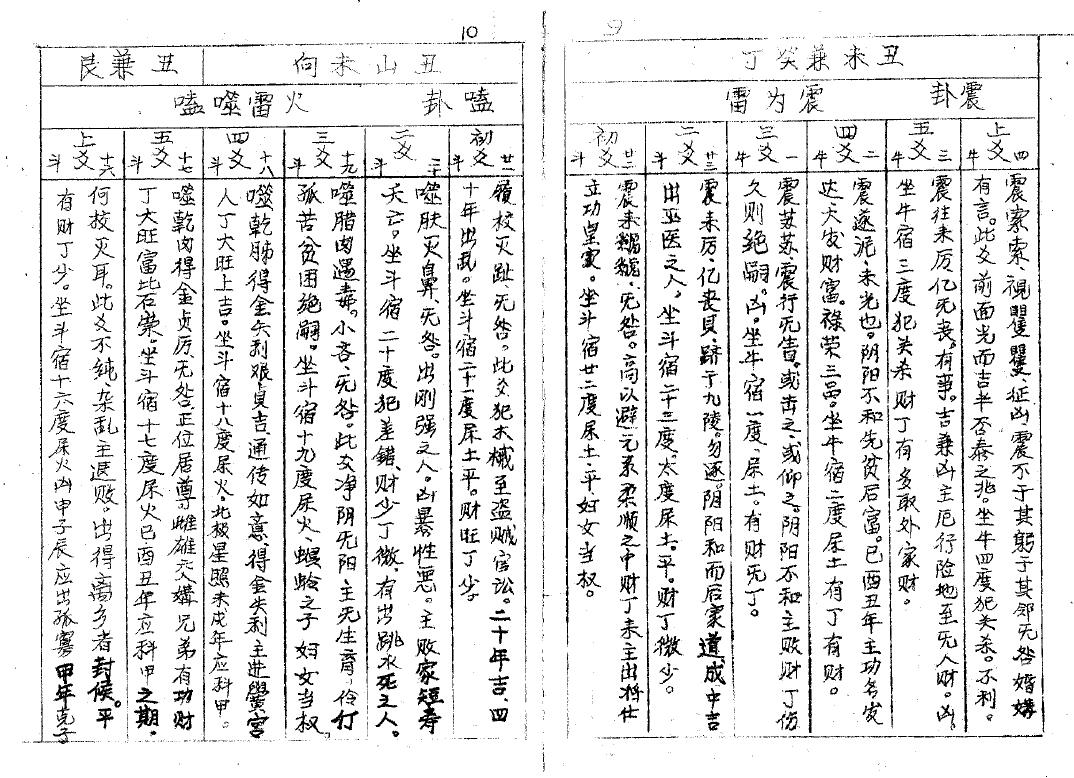 9
丑未兼癸丁
震卦 震为雷
上爻 四牛
震索索、視矍矍、征凶震不于其躬于其邻无咎婚媾
有言。此爻前面光而吉半否泰之兆。坐牛四度犯关杀。不利。
五爻 三牛
震往来厉亿无丧。有事。吉兼凶主厄行险地至无人财。凶。
坐牛宿三度犯关杀财丁有多取外家财。
四爻 二牛
震遂泥、未光也。阴阳不和先贫后富。巳酉丑年主功名发
达大发财富。禄荣三品。坐牛宿二度尿土有丁有财。
三爻 一牛
震苏苏、震行无眚。或击之、或仰之。阴阳不和主败财丁伤
久则绝嗣。凶。坐牛宿一度、尿土、有财无丁。
二爻 廿三斗
震来厉、亿丧贝、跻于九陵。勿逐。阴阳和而后家道成中吉
出巫医之人，坐斗宿二十三度。太度尿土。平。财丁微少。
初爻 廿二斗
震来虩虩、无咎。高以避元系柔顺之中财丁来主出将仕
立功皇家。坐斗宿廿二度尿土、平、妇女当权。
10
丑山未向
嗑卦 火雷噬嗑
初爻 廿一斗
履校灭趾无咎。此爻犯木械至盗贼官讼。二十年吉、四
十年出乱。坐斗宿二十一度尿土平。财旺丁少。
二爻 二十斗
噬肤灭鼻、无咎。出刚强之人。凶暴性恶。主败家短寿
夭亡。坐斗宿二十度犯差错、财少丁微、有出跳水死之人。
三爻 十九斗
噬腊肉遇毒。小吝、无咎。此爻净阴无阳主无生育、伶仃
孤苦贫困绝嗣。坐斗宿十九度尿火、螟蛉之子妇女当权。
四爻 十八斗
噬乾胏得金矢利艰贞吉通传如意、得金矢利主进黉宫
人丁大旺上吉。坐斗宿十八度尿火。北极星照未戌年应科甲。
丑兼艮
五爻 十七斗
噬乾肉得金贞厉无咎。正位居尊、雌雄交媾兄弟有功财
丁大旺富比石崇。坐斗宿十七度尿火巳酉丑年应科甲之期。
上爻 十六斗
何校灭耳。此爻不纯、杂乱主退败。出得离乡者封候。平
有财丁少。坐斗宿十六度尿火凶甲子辰应出孤寡甲年克子